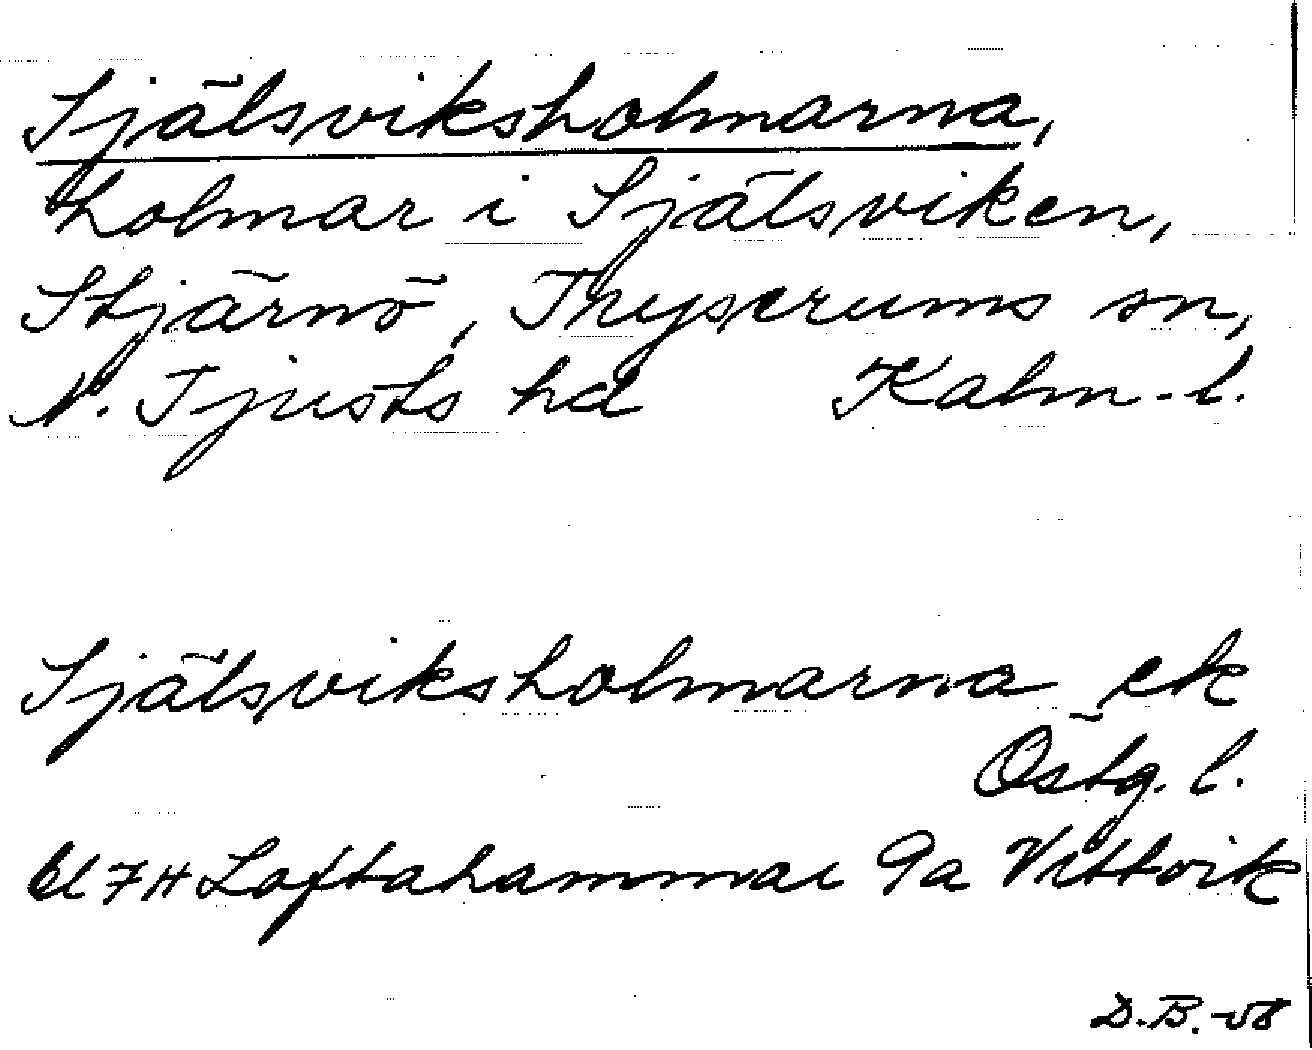 Själsviksholmarna,
holmar i Själsviken,
Stjärnö, Tryserums sn,
N. Tjusts hd Kalm. l.
Själsviksholmarna ek
Östg. l.
Bl 7H Loftahammar 9a Vittvik
D.B.-58